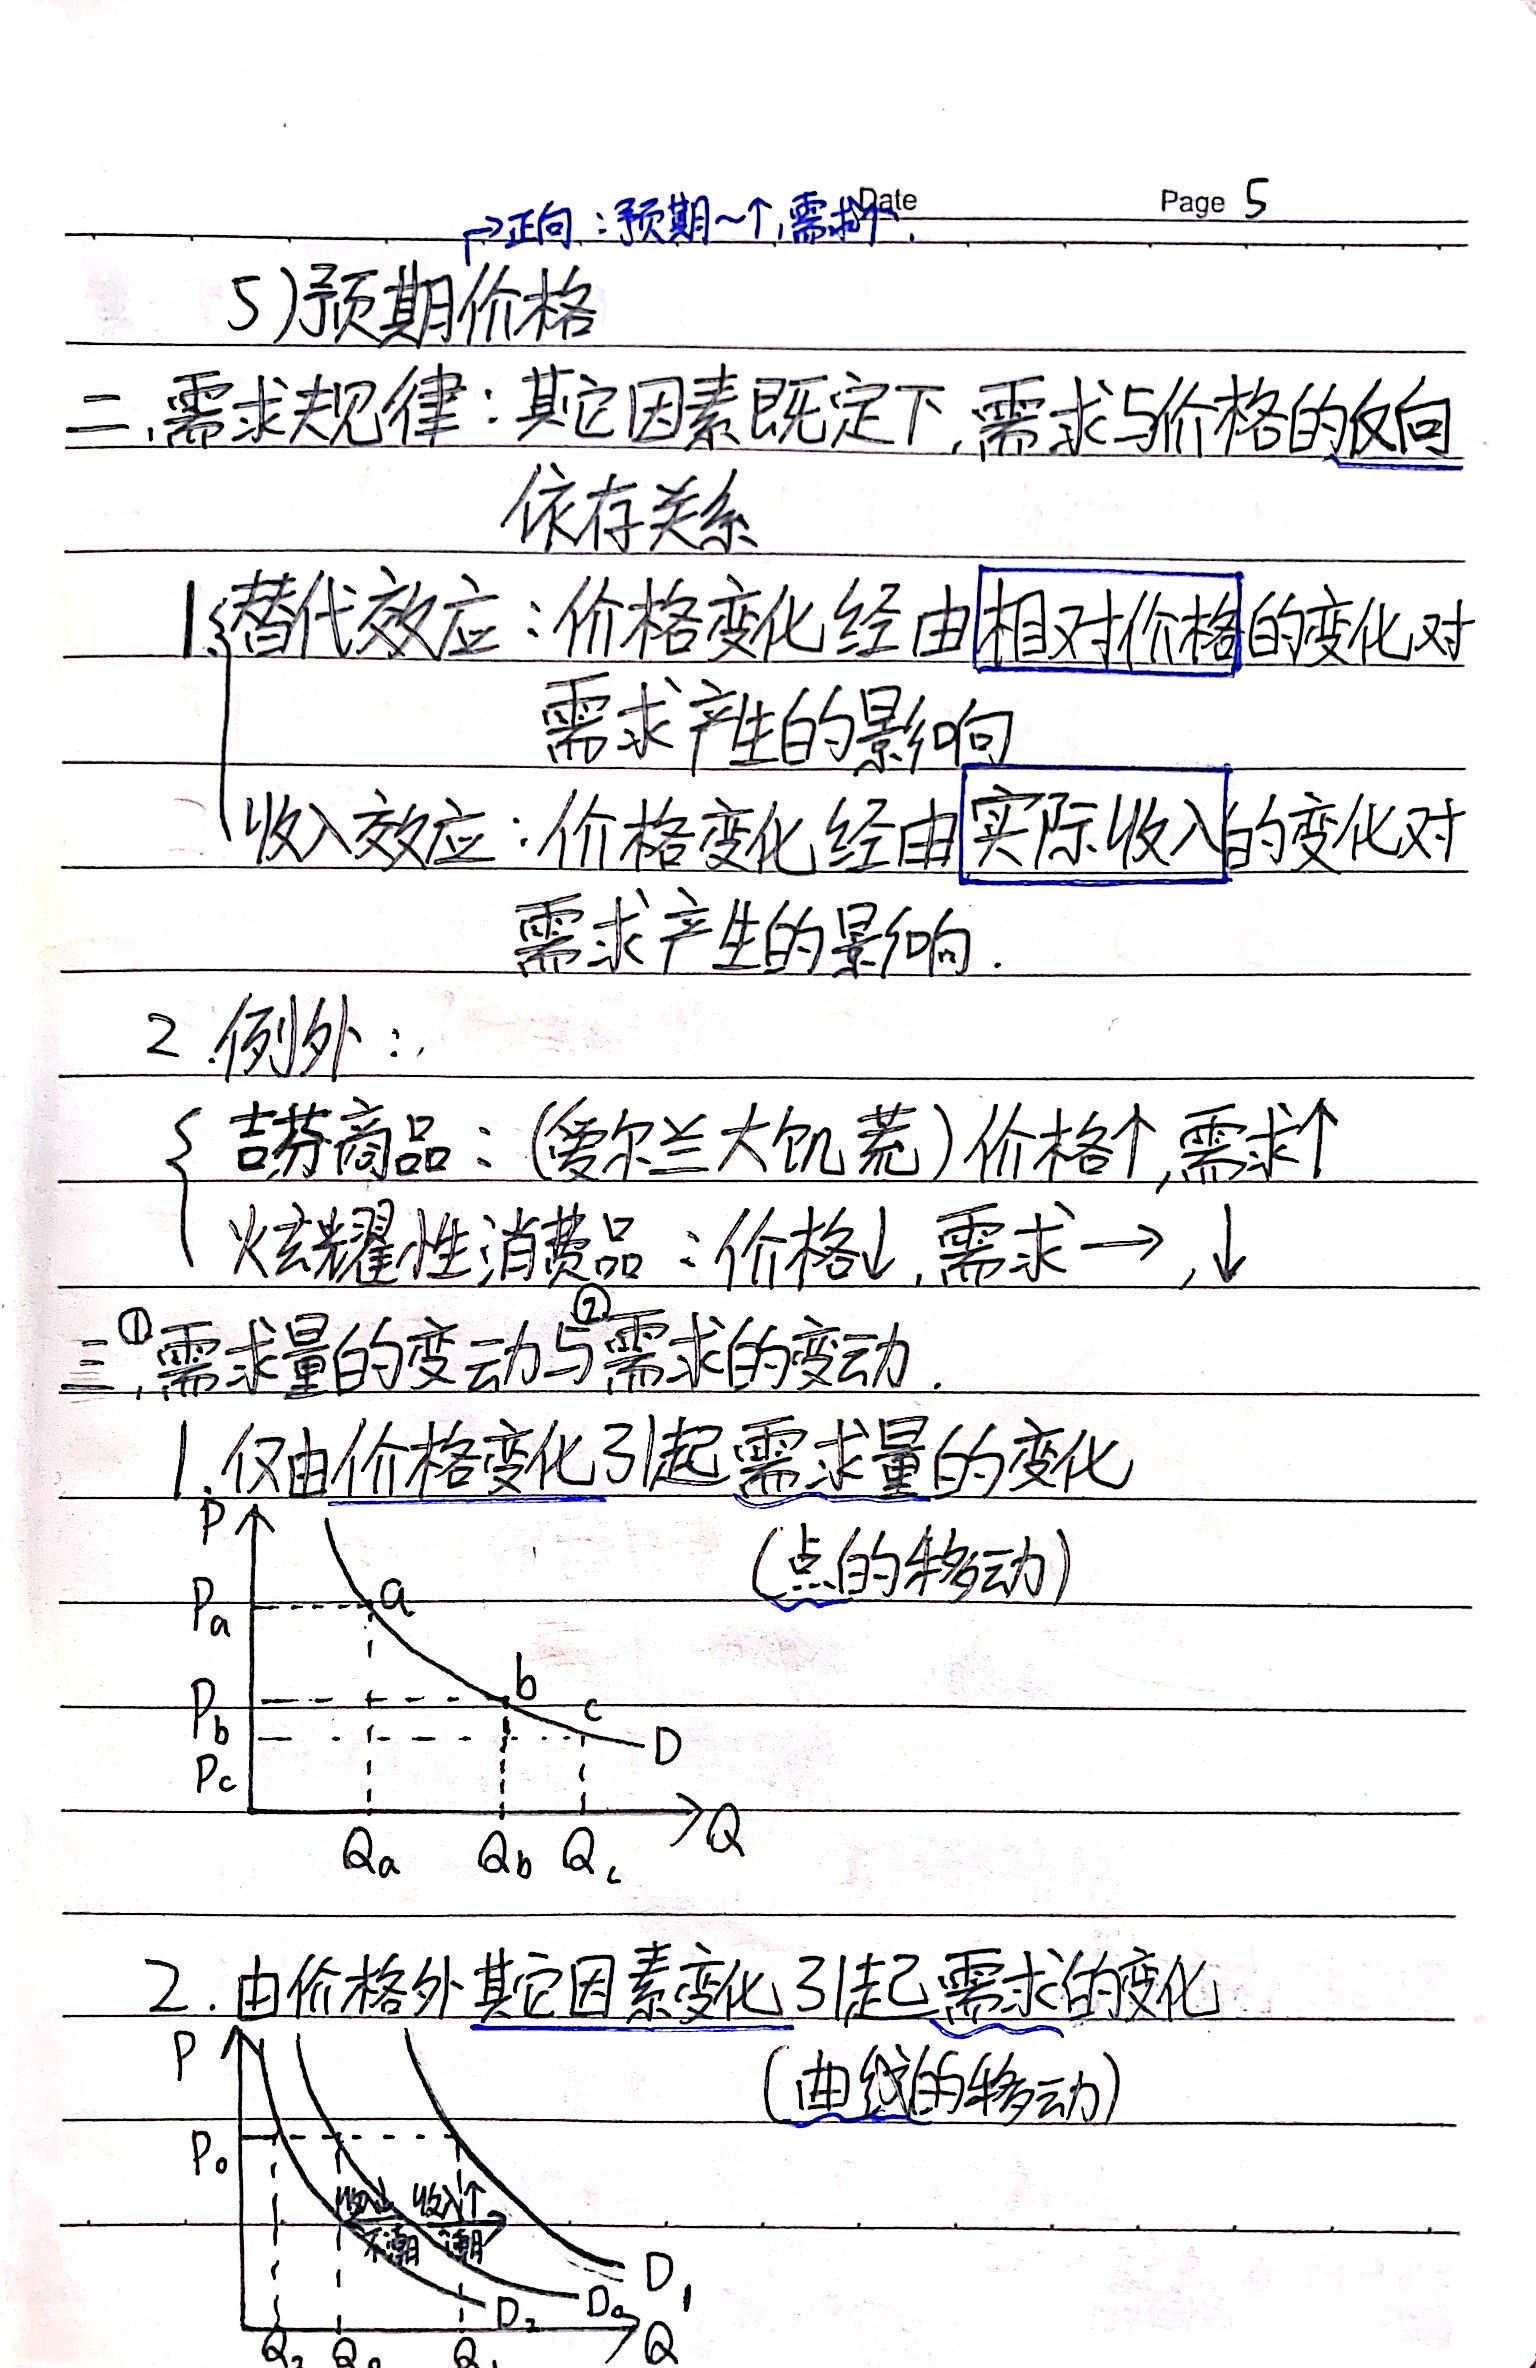 Date
Page 5
→正向：预期~↑，需求↑.
5)预期价格
二、需求规律：其它因素既定下，需求与价格的反向
依存关系
1.替代效应：价格变化经由相对价格的变化对
需求产生的影响
收入效应：价格变化经由实际收入的变化对
需求产生的影响.
2.例外：
吉芬商品：(爱尔兰大饥荒)价格↑，需求↑
炫耀性消费品：价格↓，需求→，↓
三、①需求量的变动与②需求的变动.
1.仅由价格变化引起需求量的变化
(点的移动)
P
Pa
a
Pb
b
c
Pc
D
Qa Qb Qc
Q
2.由价格外其它因素变化引起需求的变化
(曲线的移动)
P
P₀
收入↓ 收入↑
不潮 潮
D₂ D₀ D₁
Q₂ Q₀ Q₁ Q